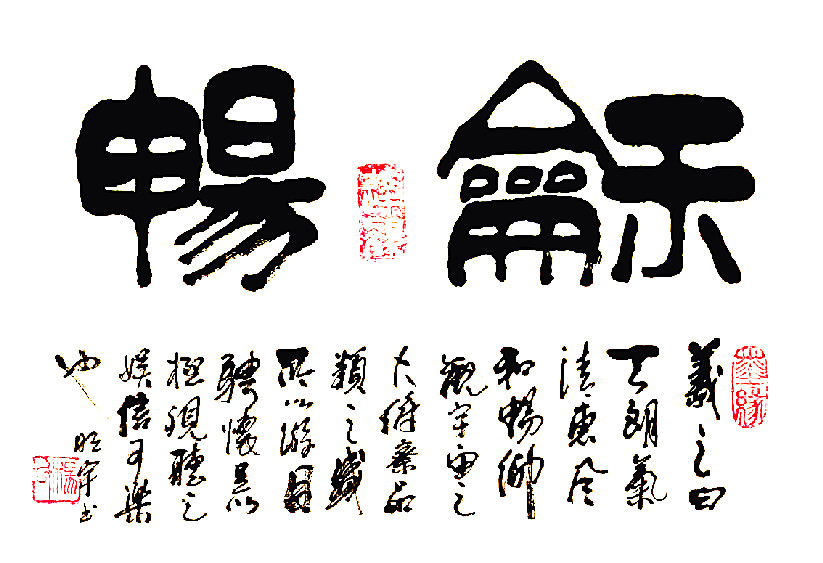 龢暢
羲之曰
天朗氣
清惠风
和暢仰
觀宇宙之
大俯察品
類之盛
所以游目
騁懷足以
極視聽之
娱信可樂
也
宇书